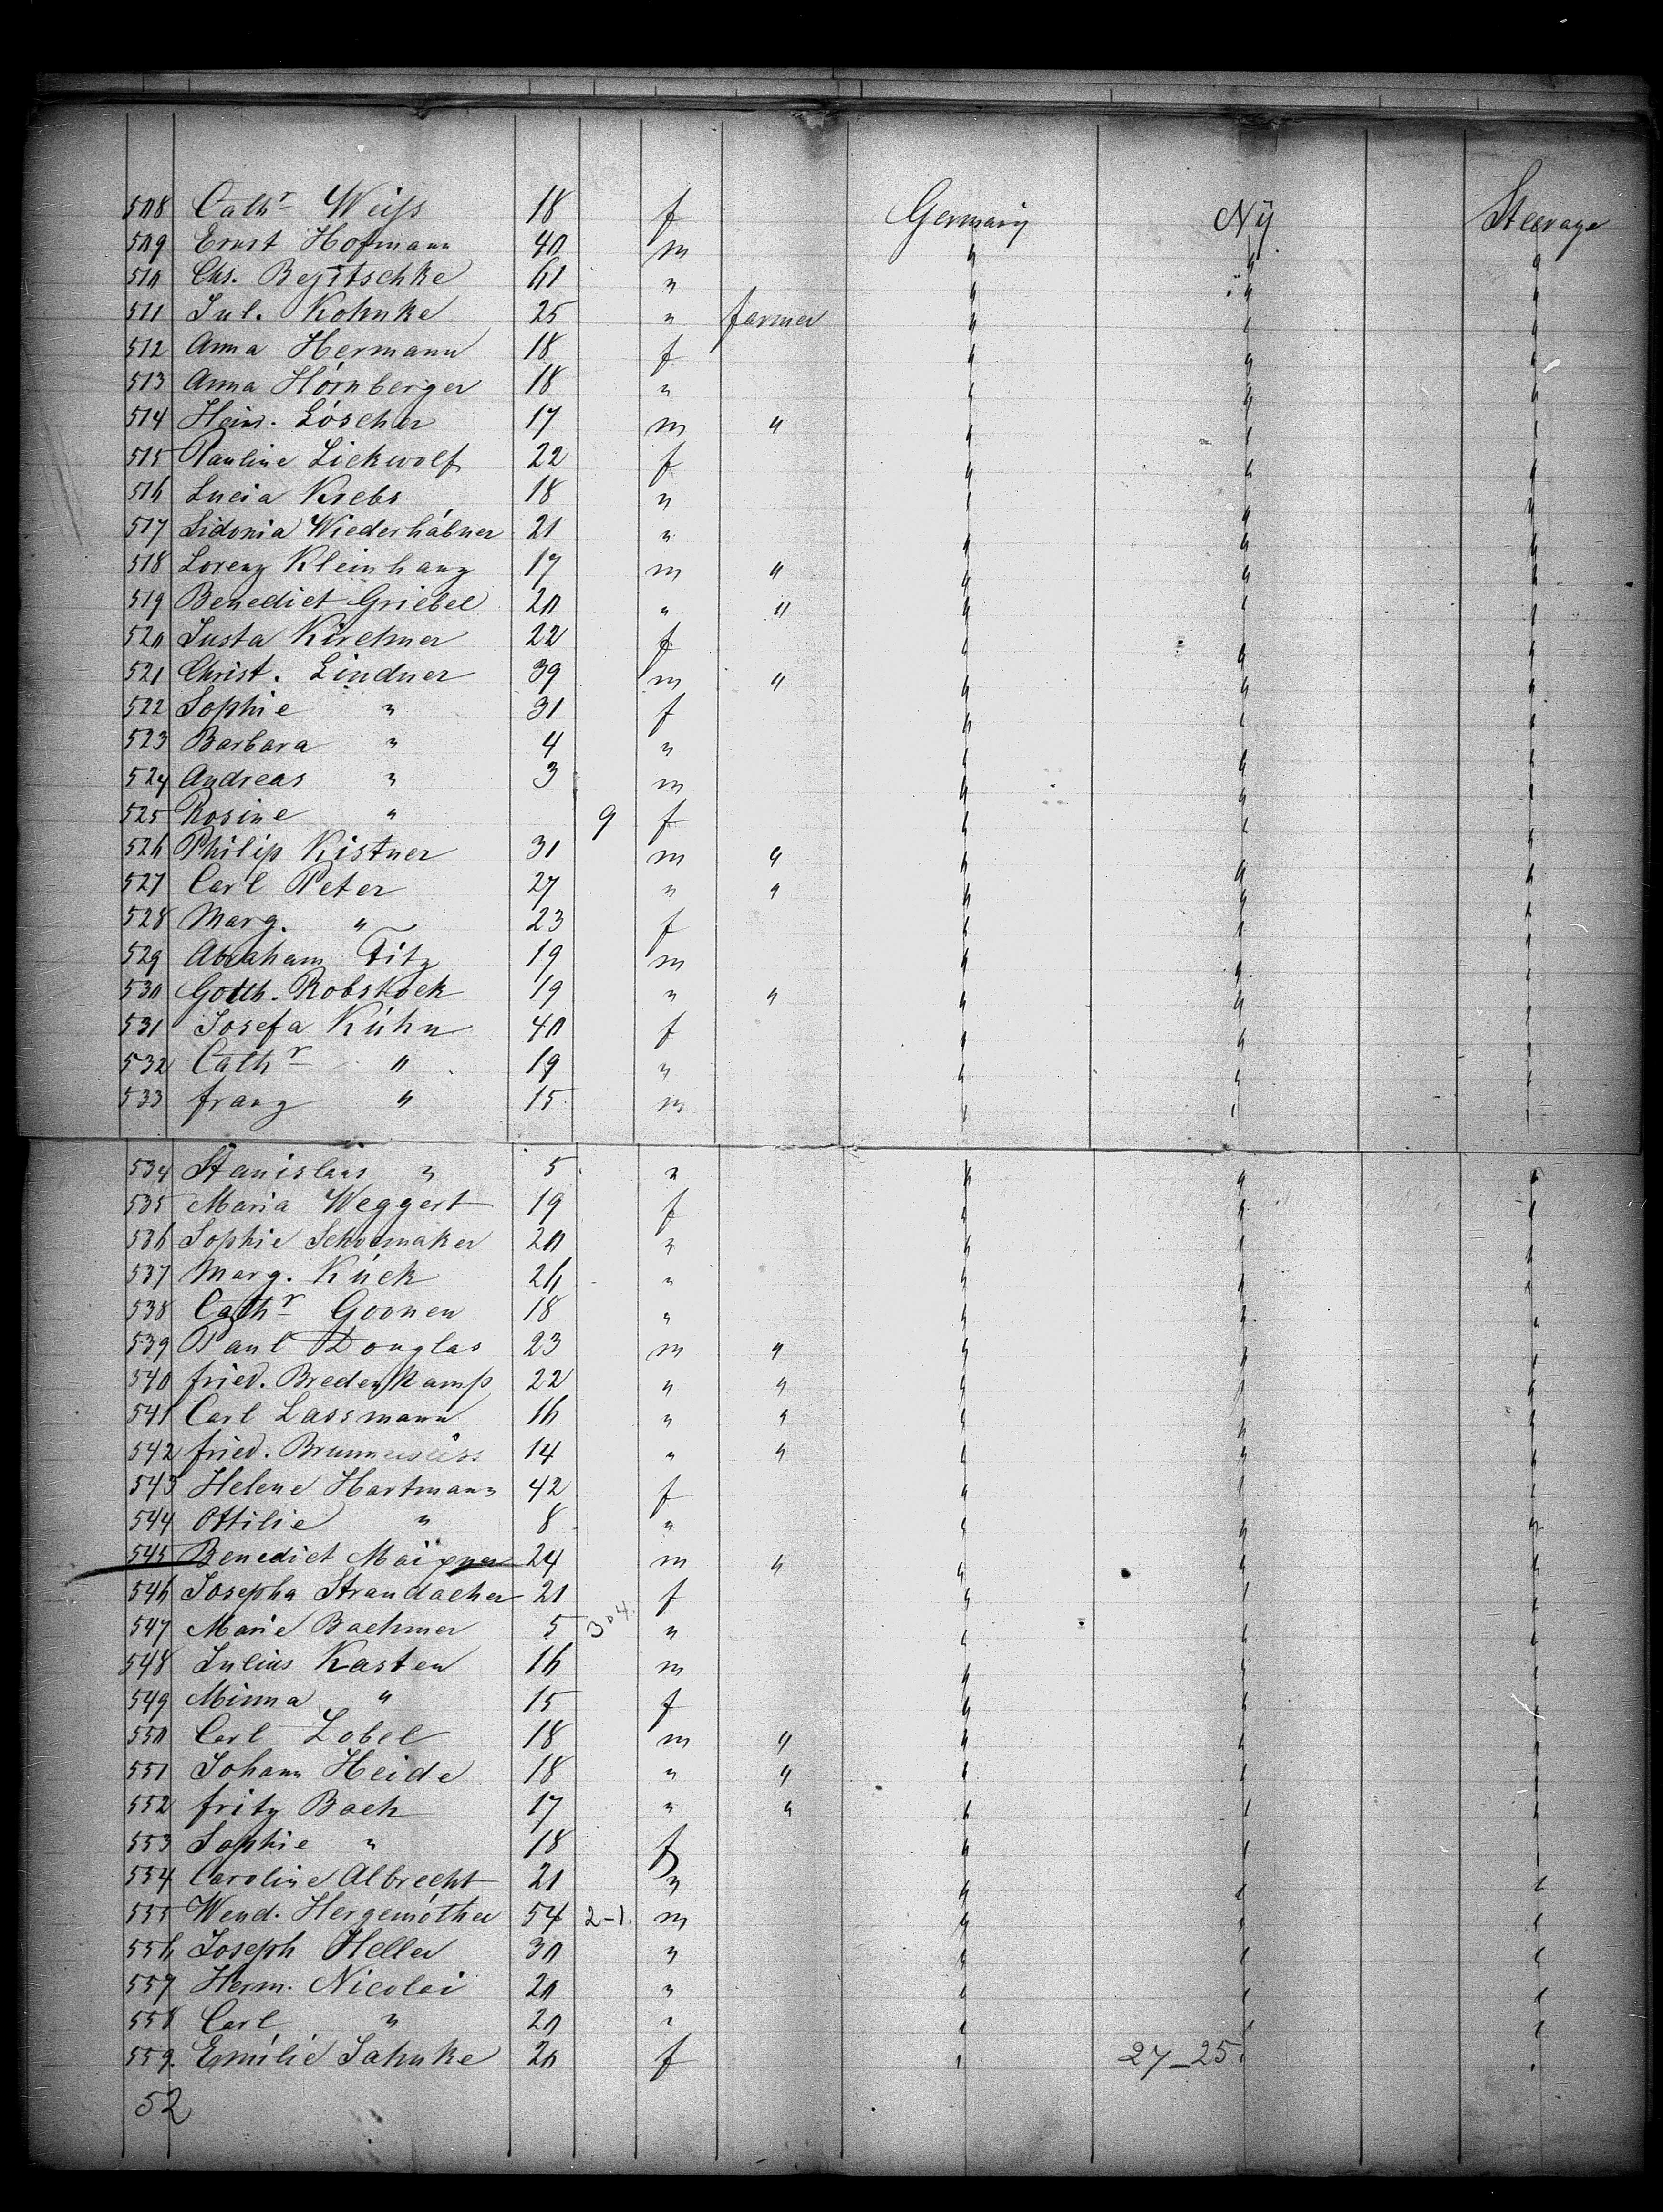 508 Cathr Weiss 18 f Germany Ny Steerage
509 Ernst Hofmann 40 m " " "
510 Chs. Bejitschke 61 " " " "
511 Jul. Kohnke 25 " farmer " " "
512 Anna Hermann 18 f " " "
513 Anna Hörnberger 18 " " " "
514 Heinr. Löscher 17 m " " " "
515 Pauline Liekwolf 22 f " " "
516 Lucia Krebs 18 " " " "
517 Sidonia Wiederhábner 21 " " " "
518 Lorenz Kleinhanz 17 m " " " "
519 Benedict Griebel 20 " " " " "
520 Justa Kirchner 22 f " " "
521 Christ. Lindner 39 m " " " "
522 Sophie " 31 f " " "
523 Barbara " 4 " " " "
524 Andreas " 3 m " " "
525 Rosine " 9 f " " "
526 Philip Kistner 31 m " " " "
527 Carl Peter 27 " " " " "
528 Marg. " 23 f " " "
529 Abraham Fitz 19 m " " "
530 Gotth. Robstock 19 " " " " "
531 Josefa Kühn 40 f " " "
532 Cathr " 19 " " " "
533 franz " 15 m " " "
534 Stanislaus " 5 " " " "
535 Maria Weggert 19 f " " "
536 Sophie Schoemaker 20 " " " "
537 Marg. Kück 26 " " " "
538 Cathr Goonen 18 " " " "
539 Paul Douglas 23 m " " " "
540 fried. Bredenkamp 22 " " " " "
541 Carl Lassmann 16 " " " " "
542 fried. 14 " " " " "
543 Helene Hartmann 42 f " " "
544 Ottilie " 8 " " " "
545 Benedict Maixner 24 m " " " "
546 Josepha Strandacher 21 f " " "
547 Marie Bachmer 5 304. " " " "
548 Julius Kasten 16 m " " "
549 Minna " 15 f " " "
550 Carl Lobel 18 m " " " "
551 Johann Heide 18 " " " " "
552 fritz Bach 17 " " " " "
553 Sophie " 18 f " " "
554 Caroline Albrecht 21 " " " "
555 Wend. Hergemöther 54 2-1. m " " "
556 Joseph Heller 30 " " " "
557 Herm. Nicolai 20 " " " "
558 Carl " 20 " " " "
559. Emilie Jahnke 20 f " 27-25 " "
52